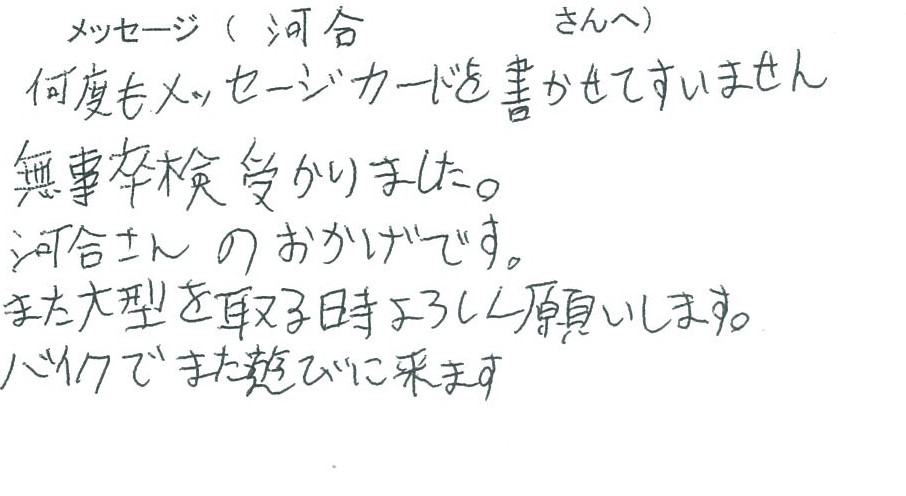 メッセージ（河合 さんへ）
何度もメッセージカードを書かせてすいません
無事卒検受かりました。
河合さんのおかげです。
また大型を取る時よろしく願いします。
バイクでまた遊びに来ます